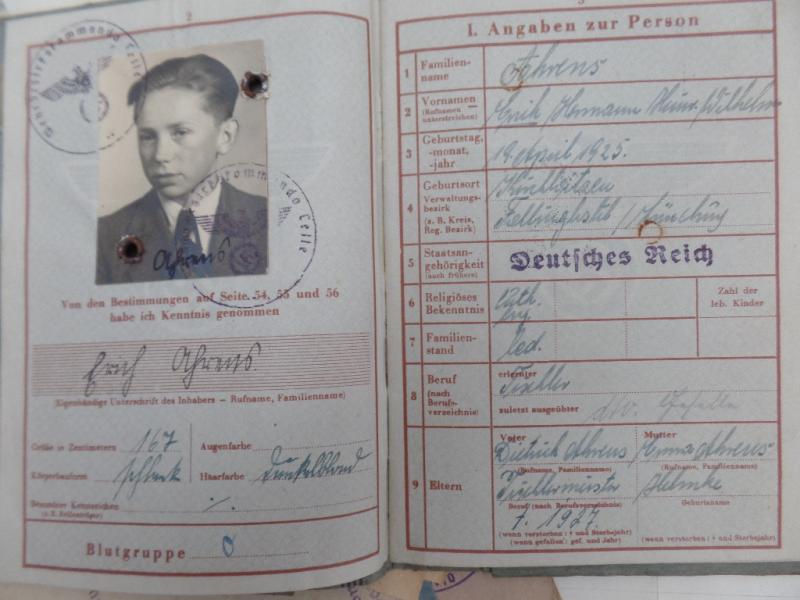 2
Wehrbezirkskommando Celle
Ahrens
Wehrbezirkskommando Celle
Von den Bestimmungen auf Seite 54, 55 und 56
habe ich Kenntnis genommen
Erich Ahrens.
(Eigenhändige Unterschrift des Inhabers – Rufname, Familienname)
Größe in Zentimetern 167 Augenfarbe
Körperbauform schlank Haarfarbe dunkelblond
Besondere Kennzeichen ./.
(z.B. Brillenträger)
Blutgruppe 0
3
I. Angaben zur Person
1 Familien-
name
Ahrens
2 Vornamen
(Rufnamen
unterstreichen)
Erich, Hermann Heinr. Wilhelm
3 Geburtstag,
-monat,
-jahr
19. April 1925.
4 Geburtsort
Verwaltungs-
bezirk
(z. B. Kreis,
Reg. Bezirk)
5 Staatsan-
gehörigkeit
(auch frühere)
Deutsches Reich
6 Religiöses
Bekenntnis
luth.
Zahl der
leb. Kinder
7 Familien-
stand
led.
8 Beruf
(nach
Berufs-
verzeichnis)
erlernter
Tischler
zuletzt ausgeübter
9 Eltern
Vater Mutter
Dietrich Ahrens Ahrens
(Rufname, Familienname) (Rufname, Familienname)
Tischlermeister
Beruf (nach Berufsverzeichnis) Geburtsname
†. 1927.
(wenn verstorben: † und Sterbejahr) (wenn verstorben: † und Sterbejahr)
(wenn gefallen: gef. und Jahr)